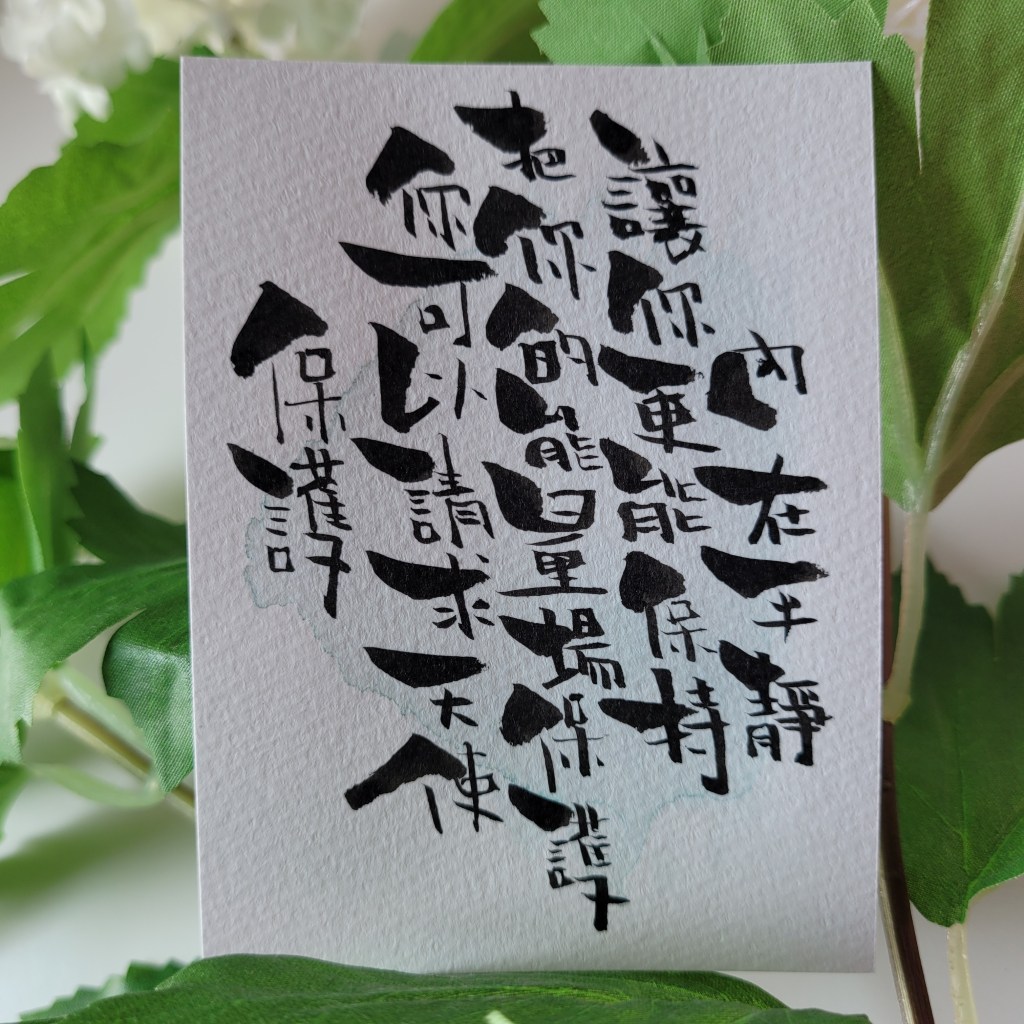 保護
你可以請求天使
把你的能量場保護
讓你更能保持
內在平靜